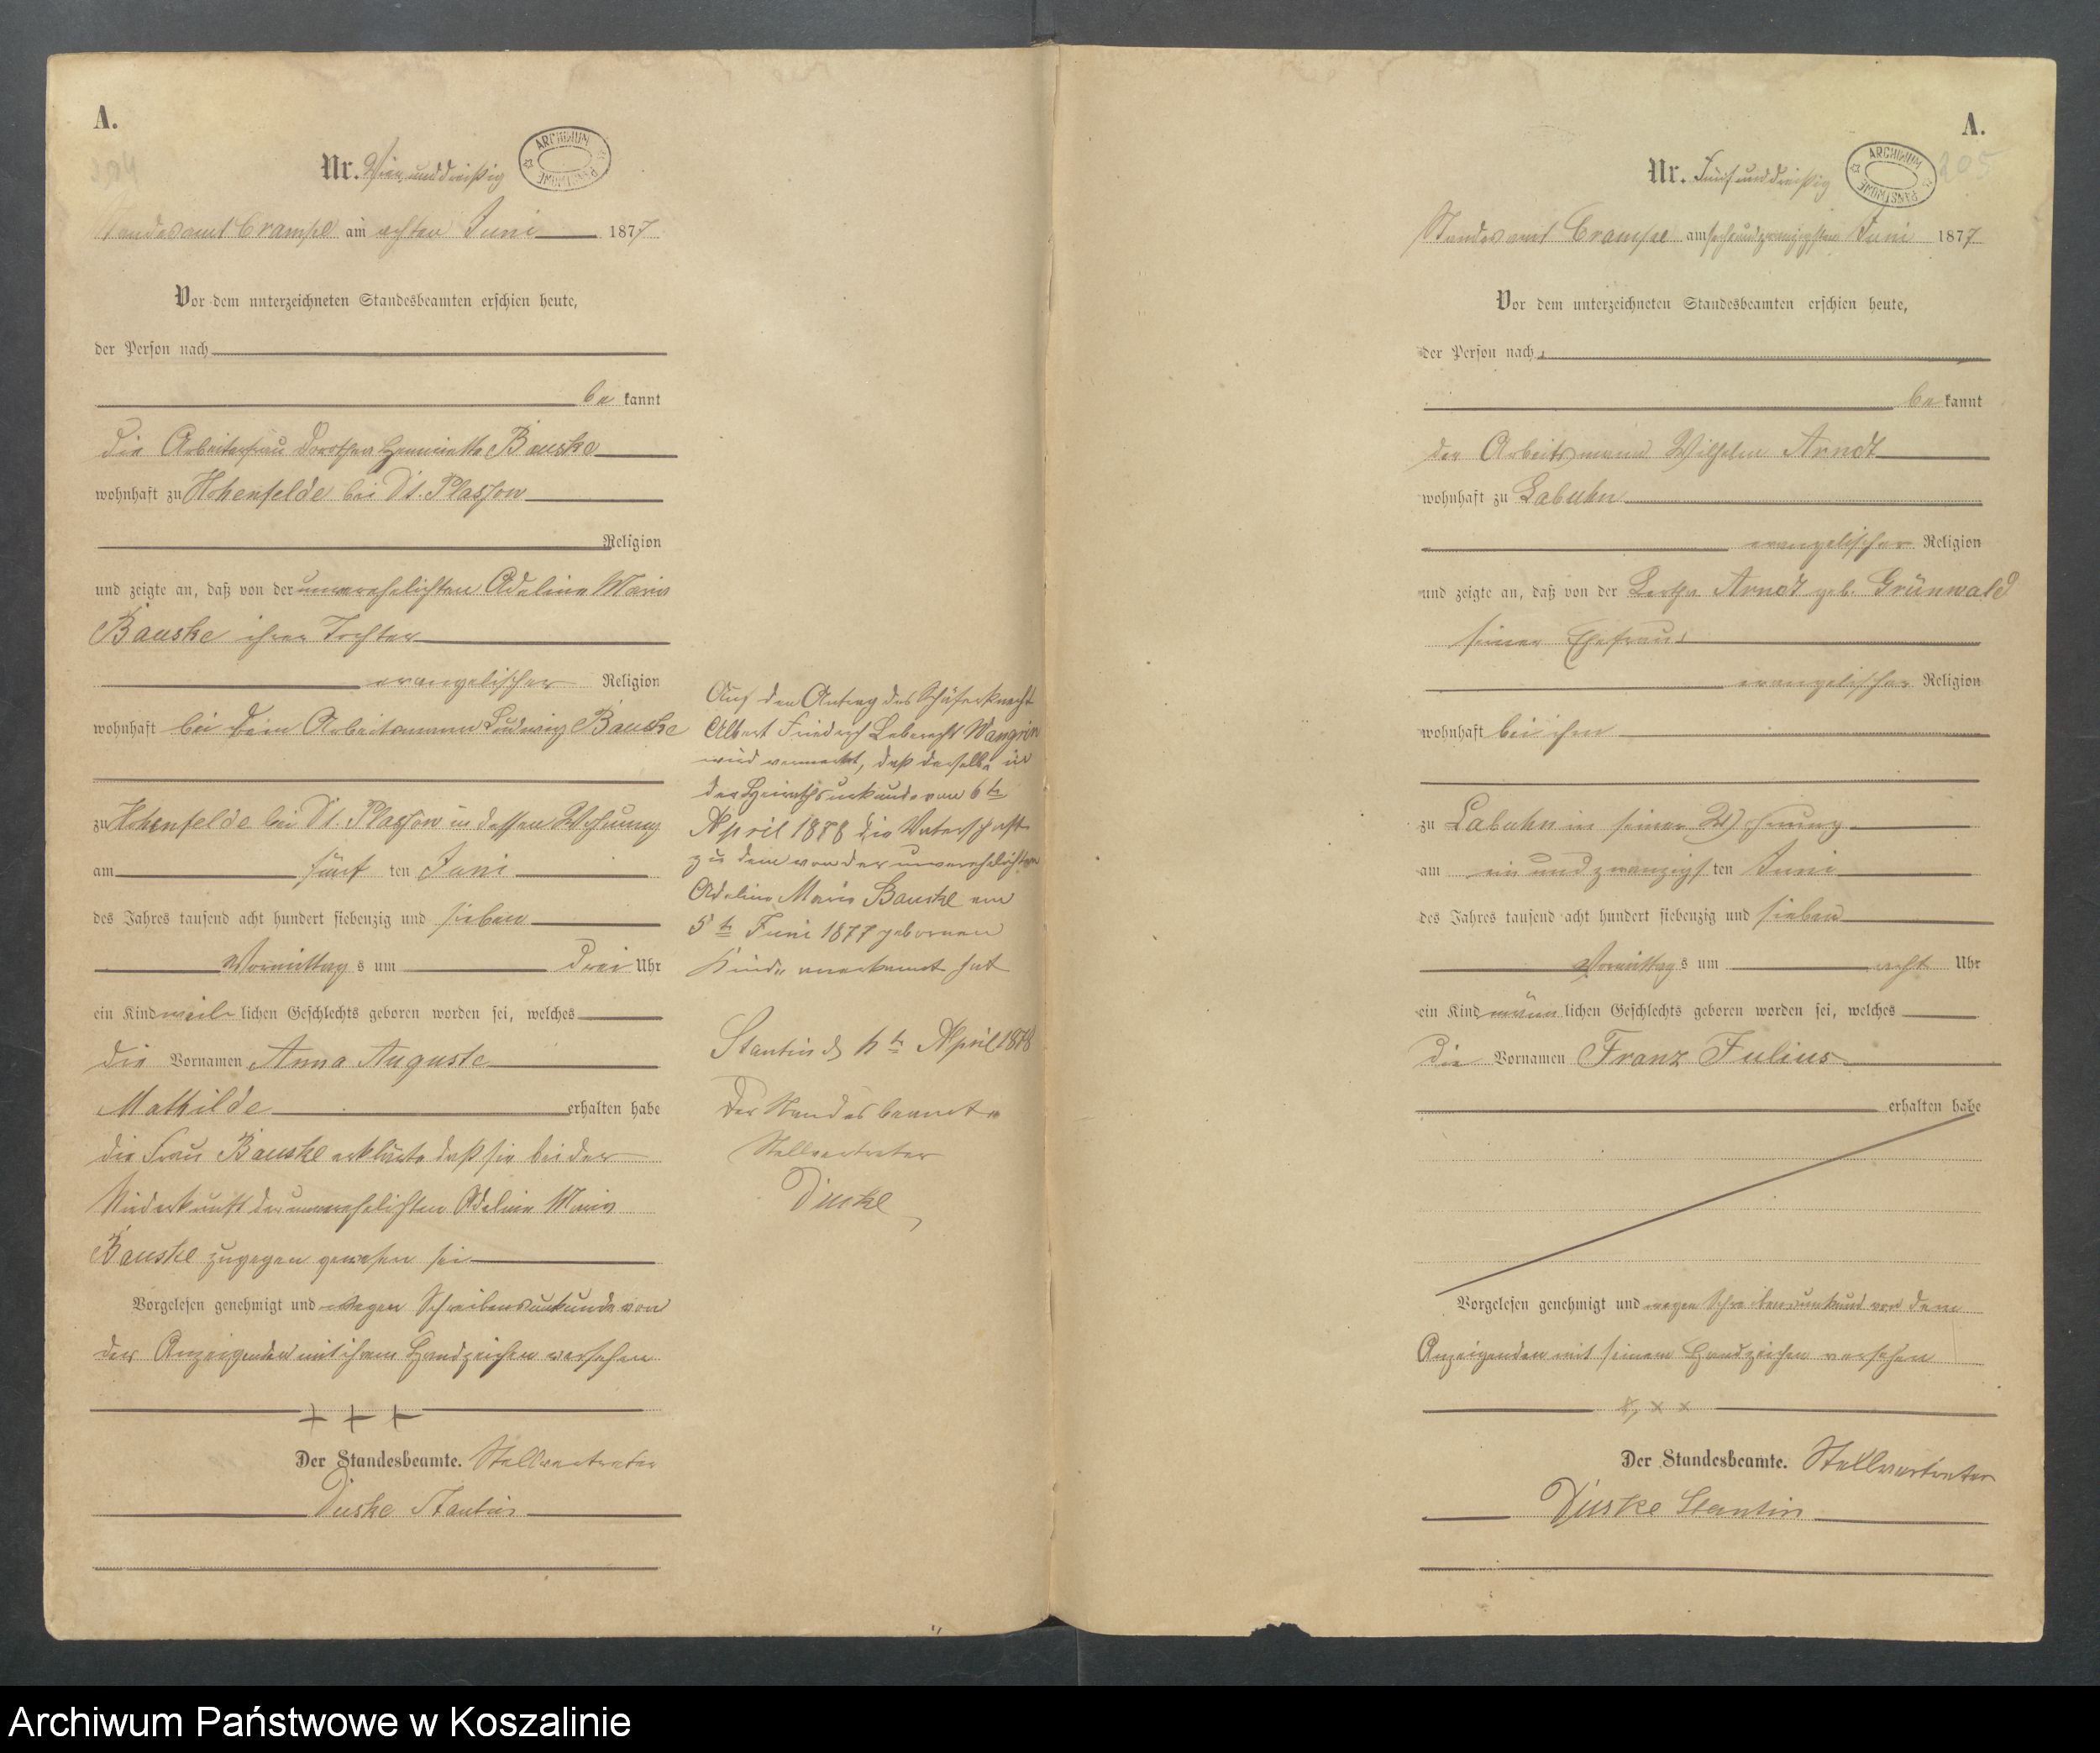 A.
204
Nr. Vier und dreißig
ARCHIWUM PAŃSTWOWE
Standesamt Crampe am achten Juni 1877
Vor dem unterzeichneten Standesbeamten erschien heute,
der Person nach
be kannt
die Arbeiterfrau Dorothea Henriette Bauske
wohnhaft zu Hohenfelde bei Dt. Plassow
Religion
und zeigte an, daß von der unverehelichten Adeline Marie
Bauske ihrer Tochter
evangelischer Religion
wohnhaft bei dem Arbeitsmann Ludwig Bauske
zu Hohenfelde bei Dt. Plassow in dessen Wohnung
am fünf ten Juni
des Jahres tausend acht hundert siebenzig und sieben
Vormittag s um drei Uhr
ein Kind weib lichen Geschlechts geboren worden sei, welches
die Vornamen Anna Auguste
Mathilde erhalten habe
die Frau Bauske erklärte daß sie bei der
Niederkunft der unverehelichten Adeline Marie
Bauske zugegen gewesen sei
Vorgelesen genehmigt und wegen Schreibensunkunde von
der Anzeigenden mit ihrem Handzeichen versehen
+ + +
Der Standesbeamte. Stellvertreter
Duske Stantin
Auf den Antrag des Schäferknecht
Albert Friedrich Leberecht Wangrin
wird vermerkt, daß derselbe in
der Heirathsurkunde vom 6 tn
April 1878 die Vaterschaft
zu dem von der unverehelichten
Adeline Marie Bauske am
5 tn Juni 1877 gebornen
Kinde anerkannt hat
Stantin d tn April 1878
Der Standesbeamte
Stellvertreter
Duske
A.
205
Nr. Fünf und dreißig
ARCHIWUM PAŃSTWOWE
Standesamt Crampe am sechsundzwanzigsten Juni 1877
Vor dem unterzeichneten Standesbeamten erschien heute,
der Person nach
be kannt
der Arbeitsmann Wilhelm Arndt
wohnhaft zu Labuhn
evangelischer Religion
und zeigte an, daß von der Arndt geb. Grünwald
seiner Ehefrau
evangelischer Religion
wohnhaft bei ihm
zu Labuhn in seiner Wohnung
am ein und zwanzigs ten Juni
des Jahres tausend acht hundert siebenzig und sieben
Vormittag s um acht Uhr
ein Kind männ lichen Geschlechts geboren worden sei, welches
die Vornamen Franz Julius
erhalten habe
Vorgelesen genehmigt und wegen Schreibensunkund von dem
Anzeigenden mit seinem Handzeichen versehen
x x x
Der Standesbeamte. Stellvertreter
Duske Stantin
Archiwum Państwowe w Koszalinie